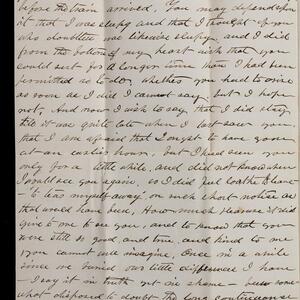 before the train arrived. You may depend upon
it that I was sleepy and that I thought of you
who doubtless was likewise sleepy, and I did
from the bottom of my heart wish that you
could rest for a longer time than I had been
permitted to do, whether you had to arise
as soon as I did I cannot say, but I hope
not, And now I wish to say that I did stay
till it was quite late when I last saw you
that I am afraid that I ought to have gone
at an earlier hour, but I had seen you
only for a little while, and did not know when
I would see you again, so I did feel loathe to leave
"to tear myself away" on such short notice as
that would have been, How much pleasure it did
give to me to see you, and to know that you
were still so good, and true, and kind to me
you cannot well imagine, Once in a while
since we buried our little differences I have
I say it in truth yet in shame - been some
what disposed to doubt the long continuance